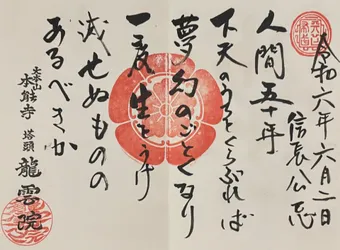 令和六年六月二日
信長公忌
人間五十年
下天のうちをくらぶれば
夢幻のごとくなり
一度生をうけ
滅せぬものの
あるべきか
大本山
本能寺 塔頭
龍雲院